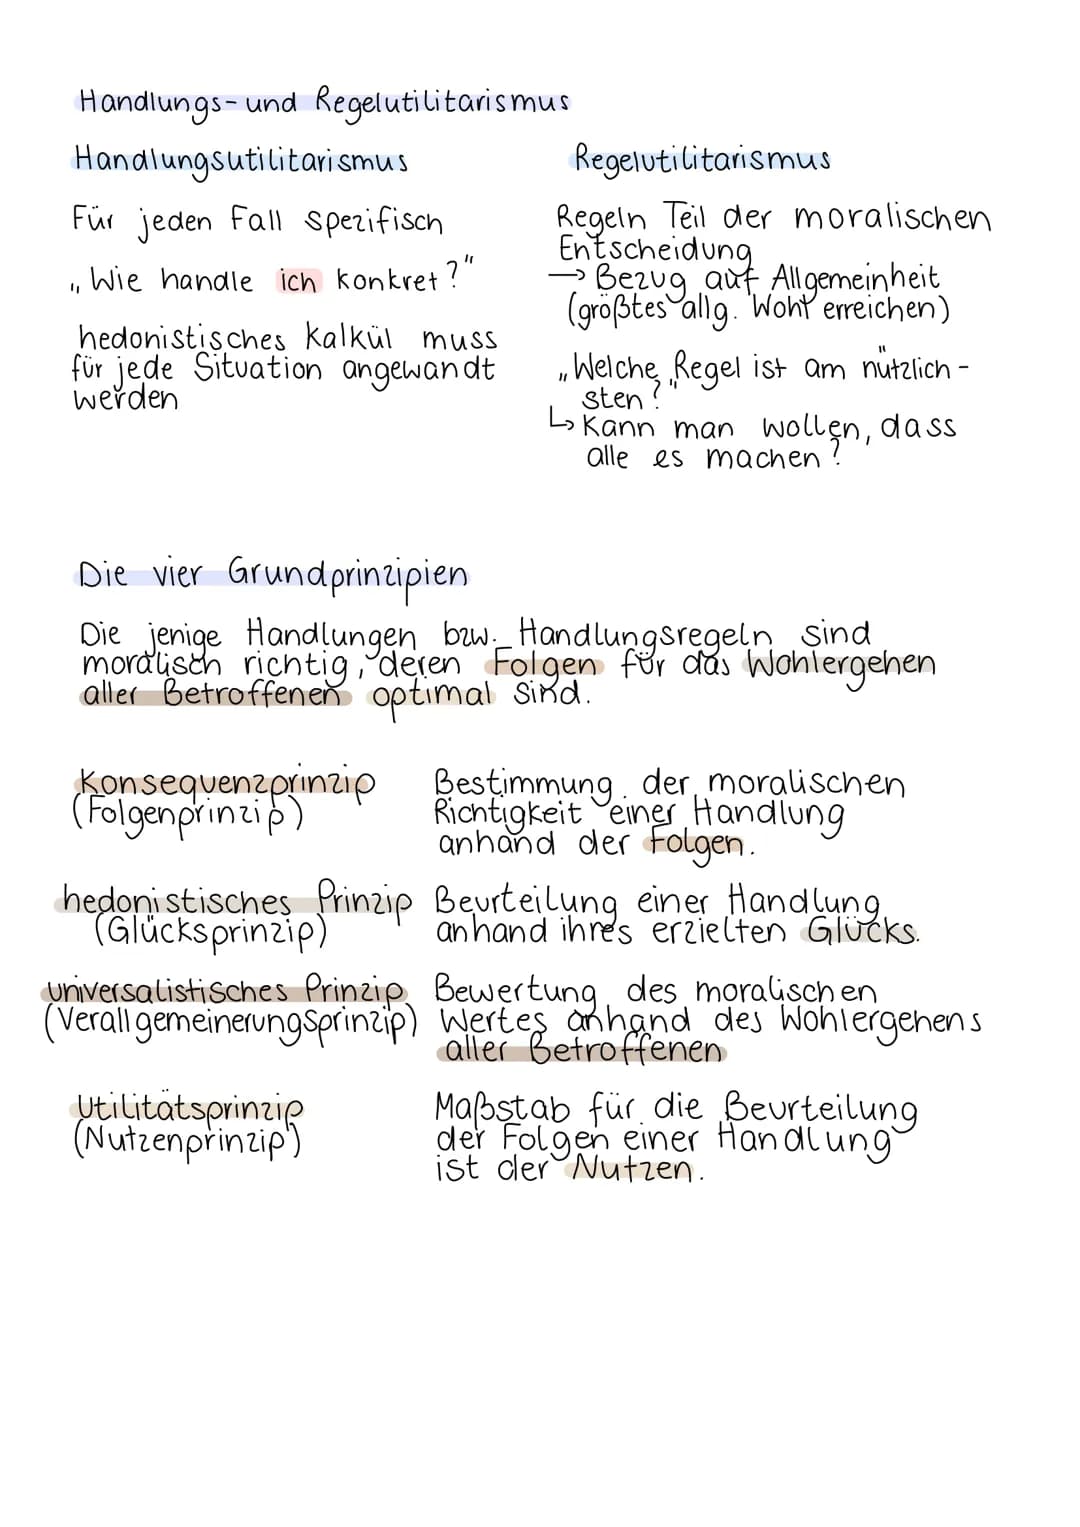 Handlungs- und Regelutilitarismus
Handlungsutilitarismus
Für jeden Fall spezifisch
„Wie handle ich konkret?"
hedonistisches Kalkül muss
für jede Situation angewandt
werden
Regelutilitarismus
Regeln Teil der moralischen
Entscheidung
→ Bezug auf Allgemeinheit
(größtes allg. Wohl erreichen)
„Welche Regel ist am nützlich-
sten?"
↳ Kann man wollen, dass
alle es machen?
Die vier Grundprinzipien
Die jenige Handlungen bzw. Handlungsregeln sind
moralisch richtig, deren Folgen für das Wohlergehen
aller Betroffenen optimal sind.
Konsequenzprinzip
(Folgenprinzip)
Bestimmung der moralischen
Richtigkeit einer Handlung
anhand der Folgen.
hedonistisches Prinzip
(Glücksprinzip)
Beurteilung einer Handlung
anhand ihres erzielten Glücks.
universalistisches Prinzip
(Verallgemeinerungsprinzip)
Bewertung des moralischen
Wertes anhand des Wohlergehens
aller Betroffenen
Utilitätsprinzip
(Nutzenprinzip)
Maßstab für die Beurteilung
der Folgen einer Handlung
ist der Nutzen.